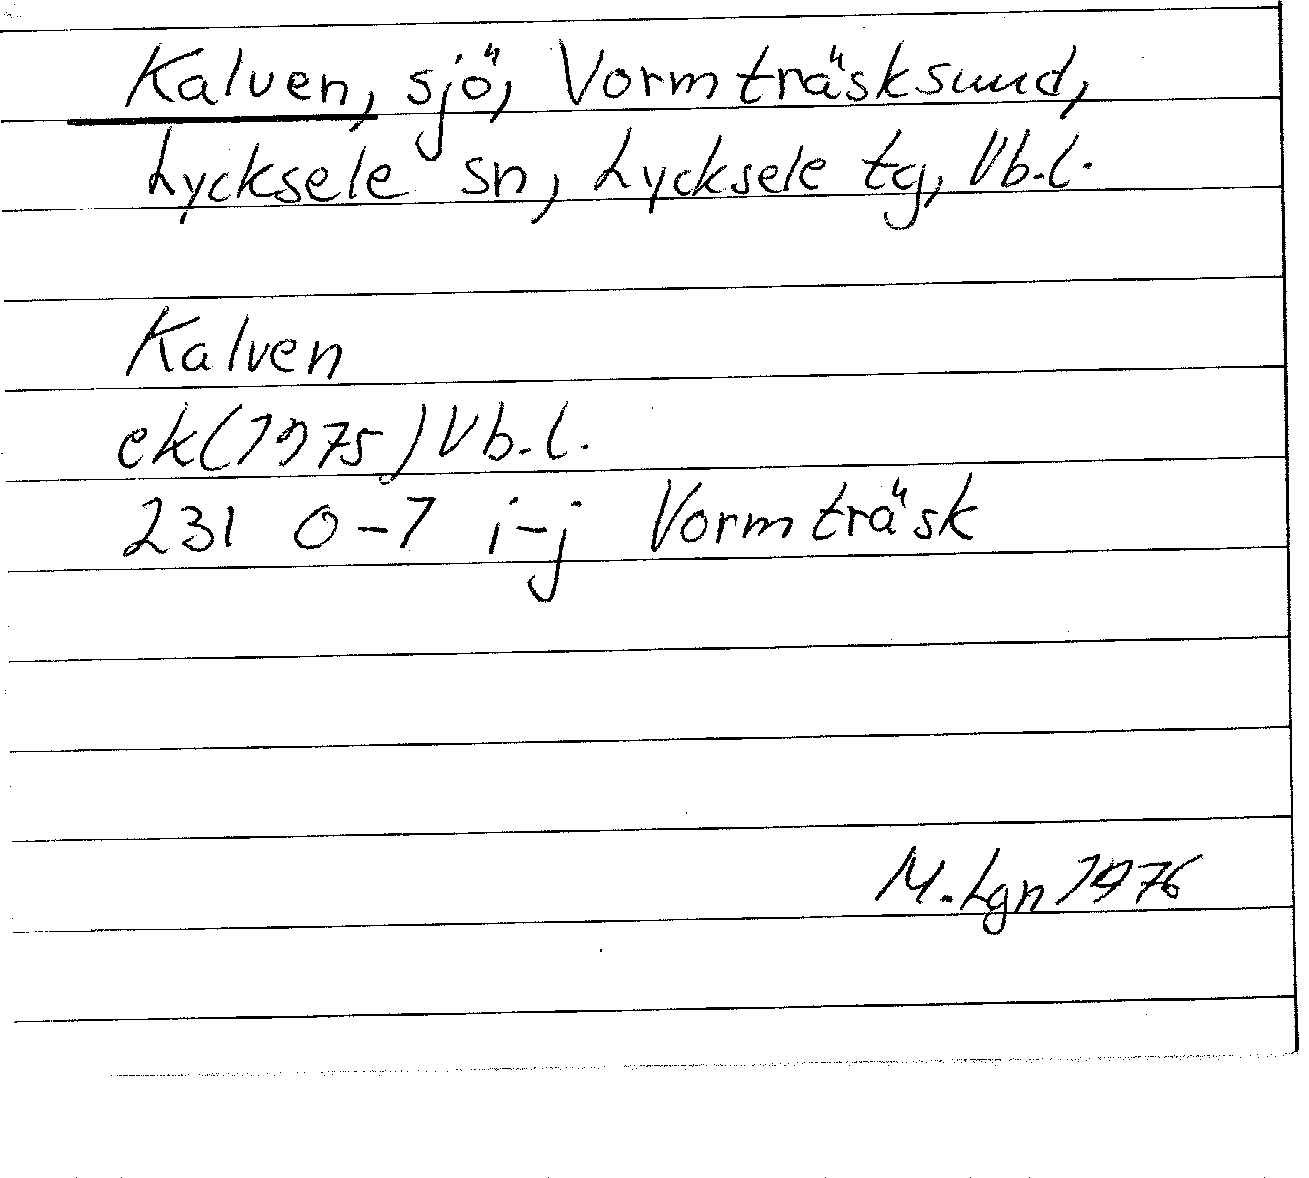 Kalven, sjö, Vormträsksund,
Lycksele sn, Lycksele tg, Vb.l.
Kalven
ek(1975) Vb.l.
231 0-1 i-j Vormträsk
M.Lgn 1976